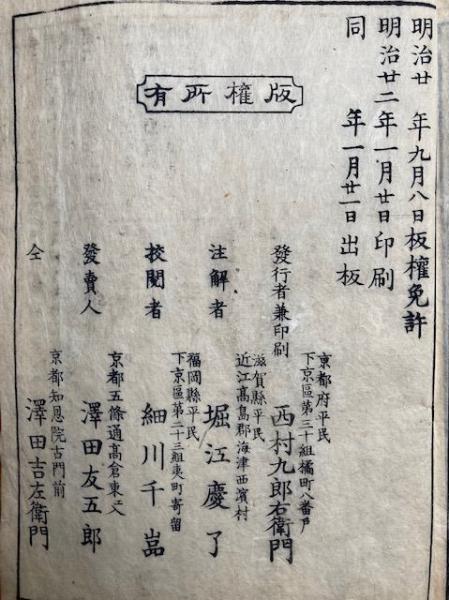 明治廿　年九月八日板權免許
明治廿二年一月廿日印刷
同　　　年一月廿一日出板
版權所有
京都府平民
下京區第三十組橘町八番戸
發行者兼印刷　西村九郎右衛門
滋賀縣平民
近江高島郡海津西濱村
注解者　堀江慶了
福岡縣平民
下京區第二十三組夷町寄留
校閲者　細川千嵓
京都五條通高倉東入
發賣人　澤田友五郎
京都知恩院古門前
仝　澤田吉左衛門